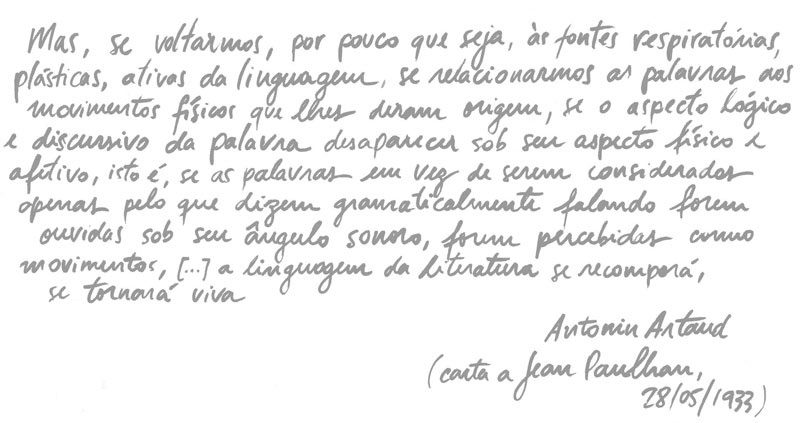 Mas, se voltarmos, por pouco que seja, às fontes respiratórias,
plásticas, ativas da linguagem, se relacionarmos as palavras aos
movimentos físicos que lhes deram origem, se o aspecto lógico
e discursivo da palavra desaparecer sob seu aspecto físico e
afetivo, isto é, se as palavras em vez de serem consideradas
apenas pelo que dizem gramaticalmente falando forem
ouvidas sob seu ângulo sonoro, forem percebidas como
movimentos, [...] a linguagem da literatura se recomporá,
se tornará viva
Antonin Artaud
(carta a Jean Paulhan,
28/05/1933)